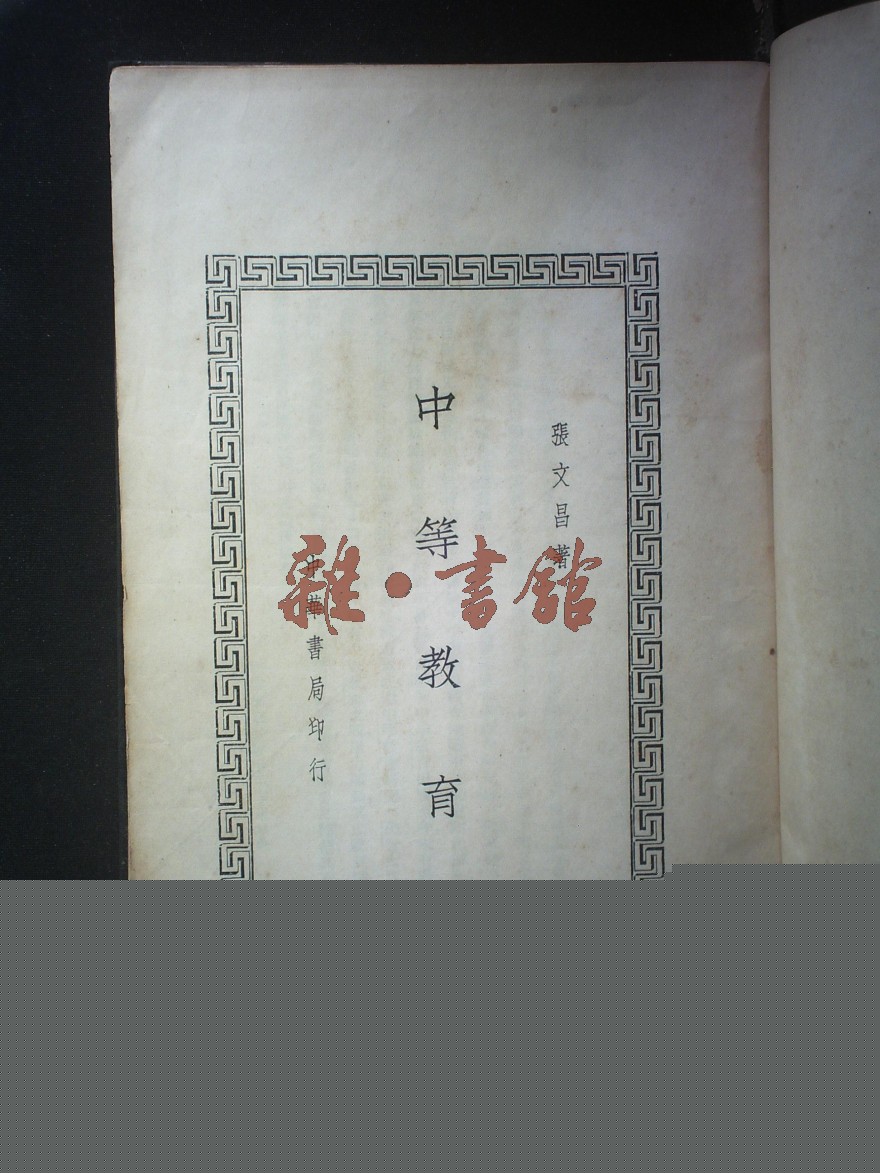 張文昌著
中等教育
中華書局印行
雜•書館